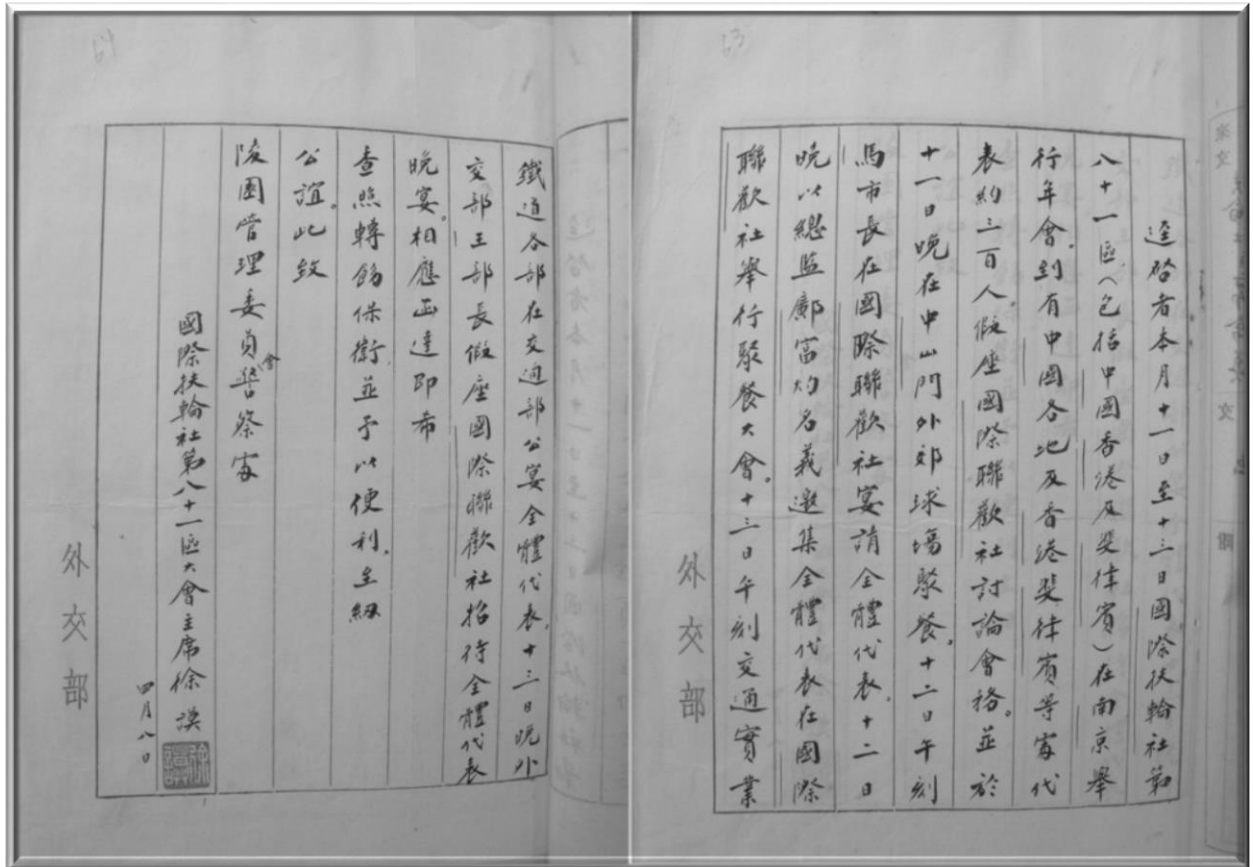 逕啓者本月十一日至十三日國際扶輪社第
八十一區（包括中國香港及斐律賓）在南京舉
行年會。到有中國各地及香港斐律賓等處代
表約三百人。假座國際聯歡社討論會務。並於
十一日晚在中山門外郊球場聚餐。十二日午刻
馬市長在國際聯歡社宴請全體代表。十二日
晚以總監鄺富灼名義邀集全體代表在國際
聯歡社舉行聚餐大會。十三日午刻交通實業
外交部
63
鐵道各部在交通部公宴全體代表。十三日晚外
交部王部長假座國際聯歡社招待全體代表
晚宴。相應函達即希
查照轉飭保衛並予以便利。至紉
公誼。此致
陵園管理委員會警察處
國際扶輪社第八十一區大會主席徐謨
四月八日
外交部
64